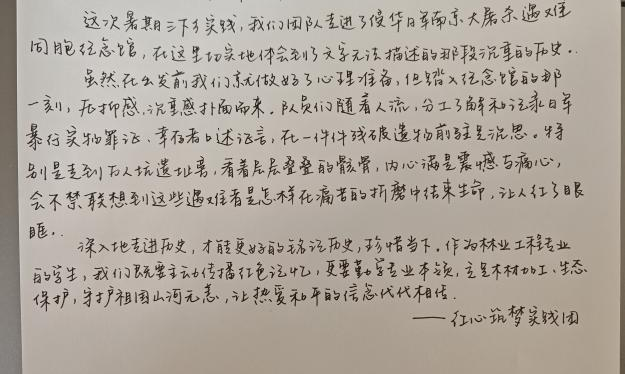 这次暑期三下乡实践，我们团队走进了侵华日军南京大屠杀遇难
同胞纪念馆，在这里切实地体会到了文字无法描述的那段沉重的历史..
虽然在出发前我们就做好了心理准备，但踏入纪念馆的那
一刻，压抑感、沉重感扑面而来。队员们随着人流，分工了解和记录日军
暴行实物罪证、幸存者口述证言，在一件件残破遗物前驻足沉思。特
别是走到万人坑遗址旁，看着层层叠叠的骸骨，内心满是震撼与痛心，
会不禁联想到这些遇难者是怎样在痛苦的折磨中结束生命，让人红了眼
眶..
深入地走进历史，才能更好的铭记历史，珍惜当下。作为林业工程专业
的学生，我们既要主动传播红色记忆，更要勤学专业本领，立足木材加工、生态
保护，守护祖国山河无恙，让热爱和平的信念代代相传.
——红心筑梦实践团